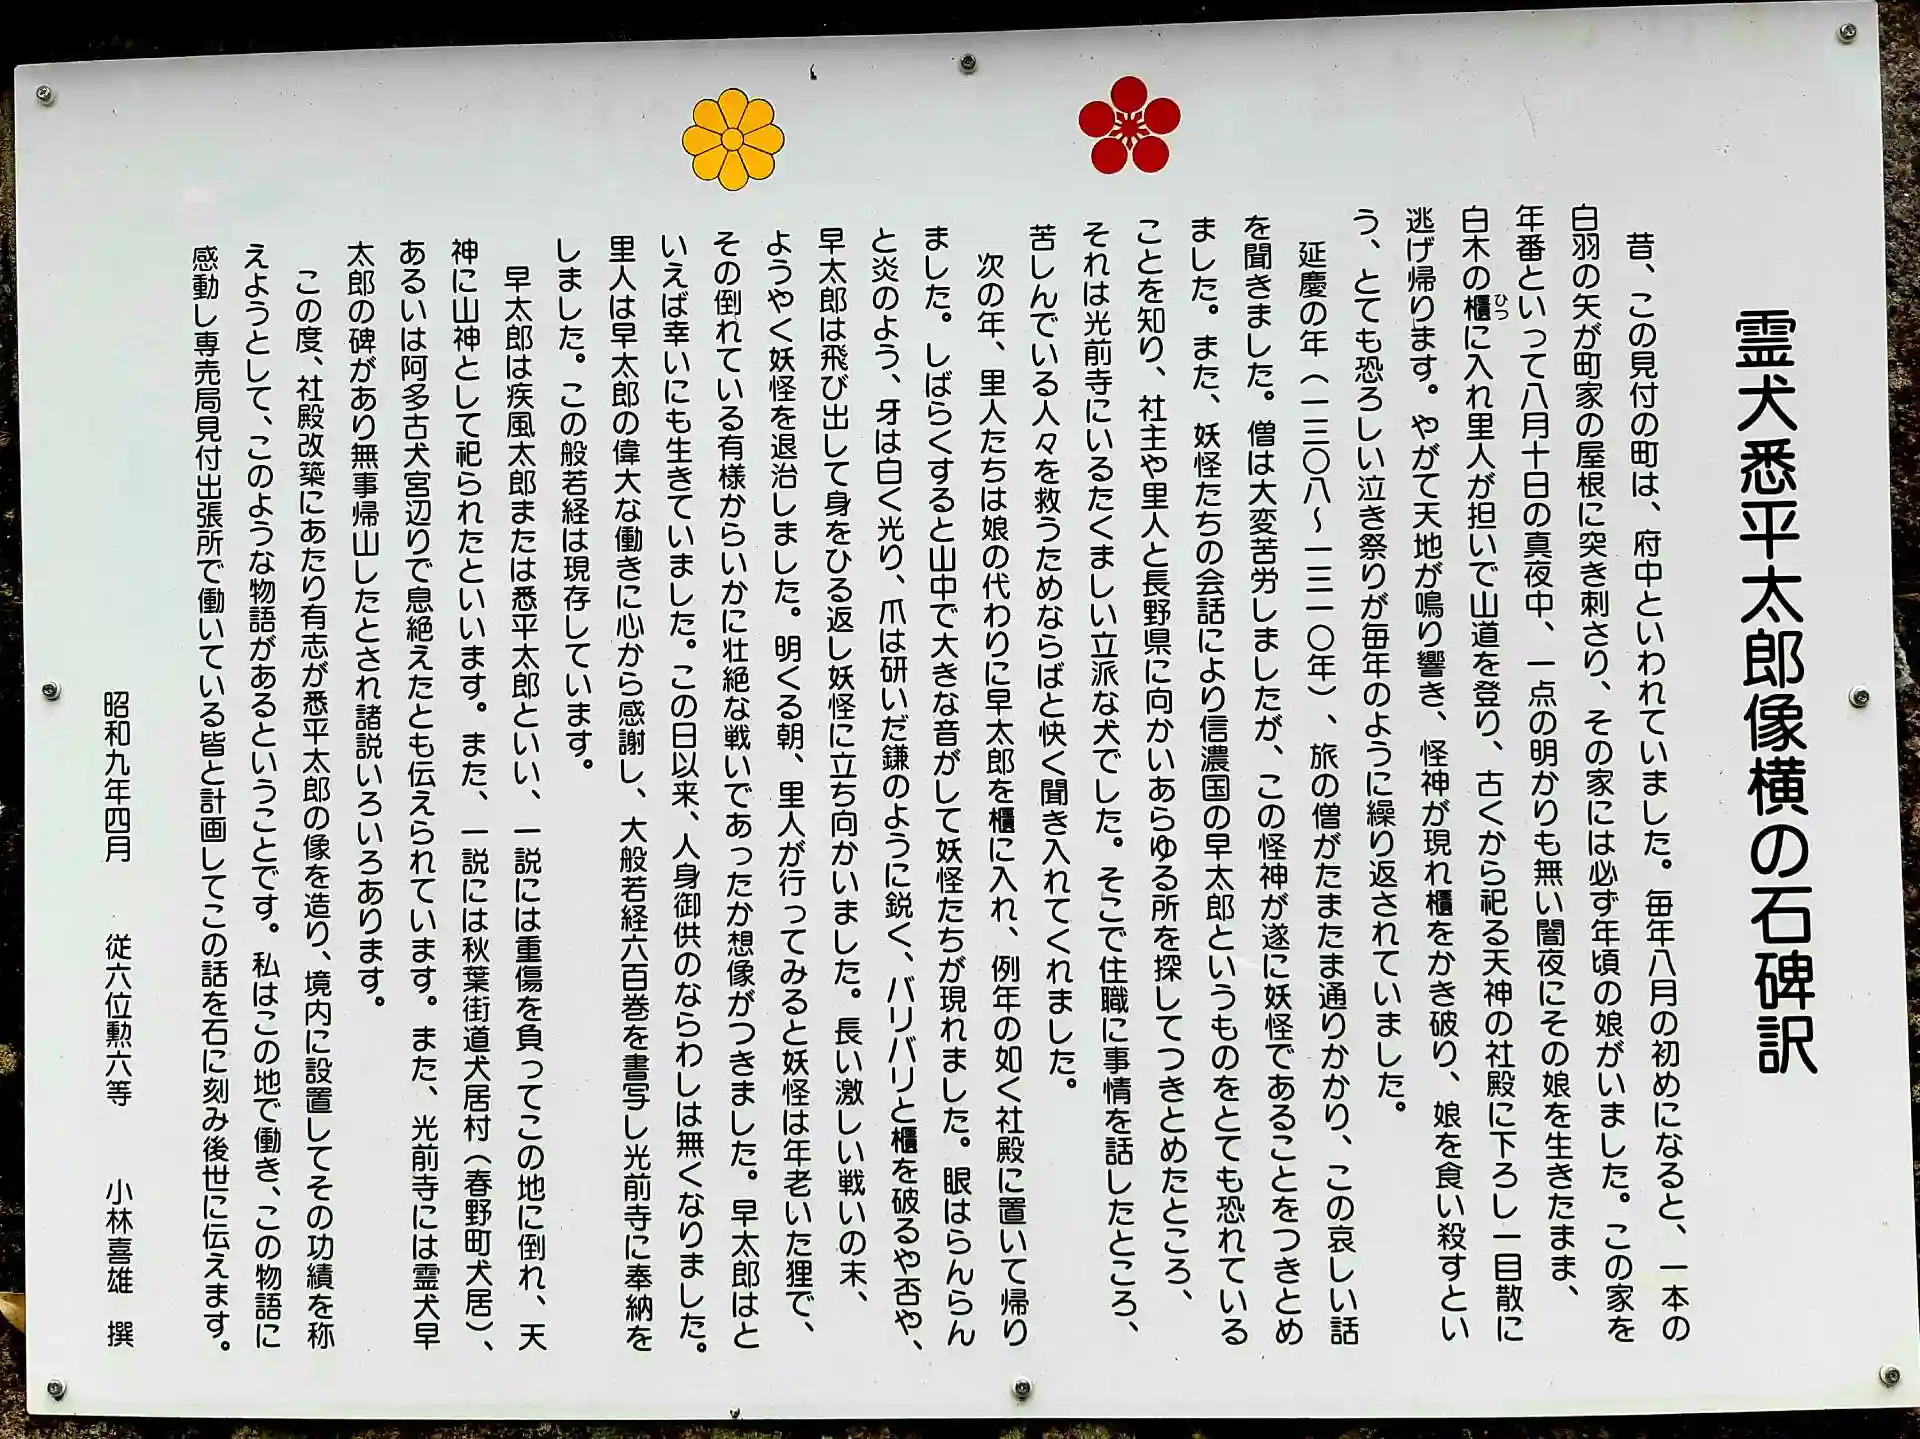 霊犬悉平太郎像横の石碑訳
昔、この見付の町は、府中といわれていました。毎年八月の初めになると、一本の
白羽の矢が町家の屋根に突き刺さり、その家には必ず年頃の娘がいました。この家を
年番といって八月十日の真夜中、一点の明かりも無い闇夜にその娘を生きたまま、
白木の櫃に入れ里人が担いで山道を登り、古くから祀る天神の社殿に下ろし一目散に
ひつ
逃げ帰ります。やがて天地が鳴り響き、怪神が現れ櫃をかき破り、娘を食い殺すとい
う、とても恐ろしい泣き祭りが毎年のように繰り返されていました。
延慶の年（一三〇八～一三一〇年）、旅の僧がたまたま通りかかり、この哀しい話
を聞きました。僧は大変苦労しましたが、この怪神が遂に妖怪であることをつきとめ
ました。また、妖怪たちの会話により信濃国の早太郎というものをとても恐れている
ことを知り、社主や里人と長野県に向かいあらゆる所を探してつきとめたところ、
それは光前寺にいるたくましい立派な犬でした。そこで住職に事情を話したところ、
苦しんでいる人々を救うためならばと快く聞き入れてくれました。
次の年、里人たちは娘の代わりに早太郎を櫃に入れ、例年の如く社殿に置いて帰り
ました。しばらくすると山中で大きな音がして妖怪たちが現れました。眼はらんらん
と炎のよう、牙は白く光り、爪は研いだ鎌のように鋭く、バリバリと櫃を破るや否や、
早太郎は飛び出して身をひる返し妖怪に立ち向かいました。長い激しい戦いの末、
ようやく妖怪を退治しました。明くる朝、里人が行ってみると妖怪は年老いた狸で、
その倒れている有様からいかに壮絶な戦いであったか想像がつきました。早太郎はと
いえば幸いにも生きていました。この日以来、人身御供のならわしは無くなりました。
里人は早太郎の偉大な働きに心から感謝し、大般若経六百巻を書写し光前寺に奉納を
しました。この般若経は現存しています。
早太郎は疾風太郎または悉平太郎といい、一説には重傷を負ってこの地に倒れ、天
神に山神として祀られたといいます。また、一説には秋葉街道犬居村（春野町犬居）、
あるいは阿多古犬宮辺りで息絶えたとも伝えられています。また、光前寺には霊犬早
太郎の碑があり無事帰山したとされ諸説いろいろあります。
この度、社殿改築にあたり有志が悉平太郎の像を造り、境内に設置してその功績を称
えようとして、このような物語があるということです。私はこの地で働き、この物語に
感動し専売局見付出張所で働いている皆と計画してこの話を石に刻み後世に伝えます。
昭和九年四月　従六位勲六等　小林喜雄　撰